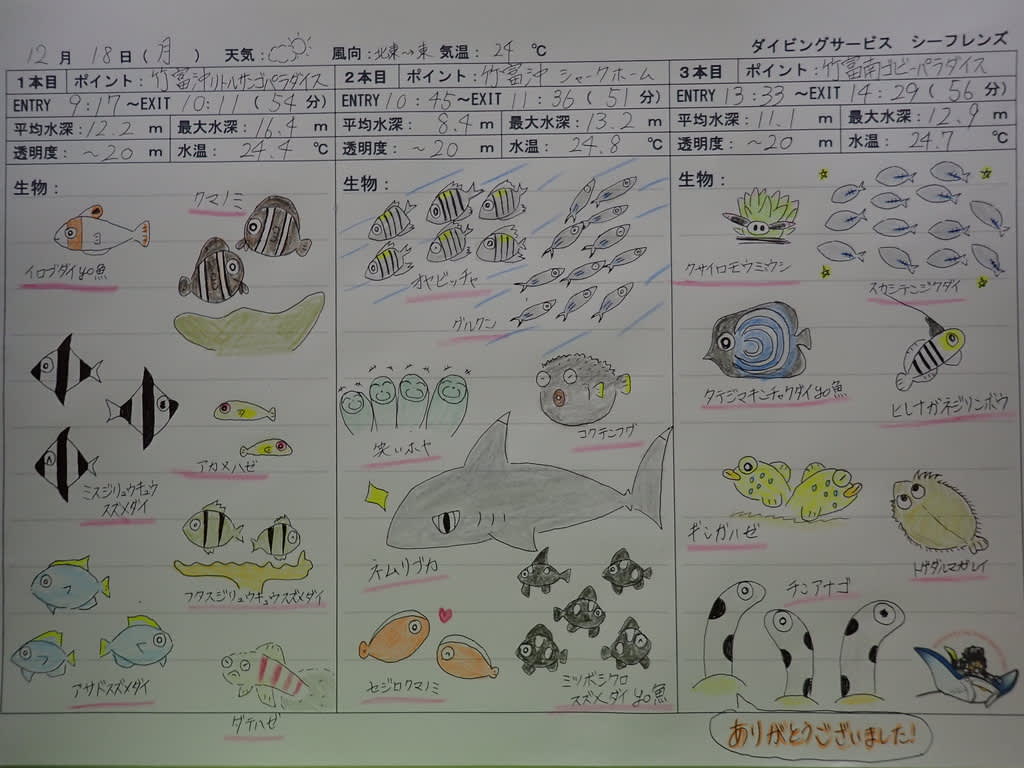 12月 18日(月) 天気: 風向:北東→東 気温:24℃ ダイビングサービス シーフレンズ
1本目 ポイント:竹富沖リトルサンゴパラダイス
ENTRY 9:17~EXIT 10:11(54分)
平均水深:12.2 m 最大水深:16.4 m
透明度:~20 m 水温:24.4 ℃
生物:
クマノミ
イロブダイyg魚
ミスジリュウキュウ
スズメダイ
アカメハゼ
フタスジリュウキュウスズメダイ
アサドスズメダイ
ダテハゼ
2本目 ポイント:竹富沖 シャークホーム
ENTRY 10:45~EXIT 11:36(51分)
平均水深:8.4 m 最大水深:13.2 m
透明度:~20 m 水温:24.8 ℃
生物:
オヤビッチャ
グルクン
笑いホヤ
コクテンフグ
ネムリブカ
セジロクマノミ
ミツボシクロ
スズメダイyg魚
3本目 ポイント:竹富南ゴビーパラダイス
ENTRY 13:33~EXIT 14:29(56分)
平均水深:11.1 m 最大水深:12.9 m
透明度:~20 m 水温:24.7 ℃
生物:
クサイロモウミウシ
スカシテンジクダイ
タテジマキンチャクダイyg魚
ヒレナガネジリンボウ
ギンガハゼ
トゲダルマガレイ
チンアナゴ
ありがとうございました!